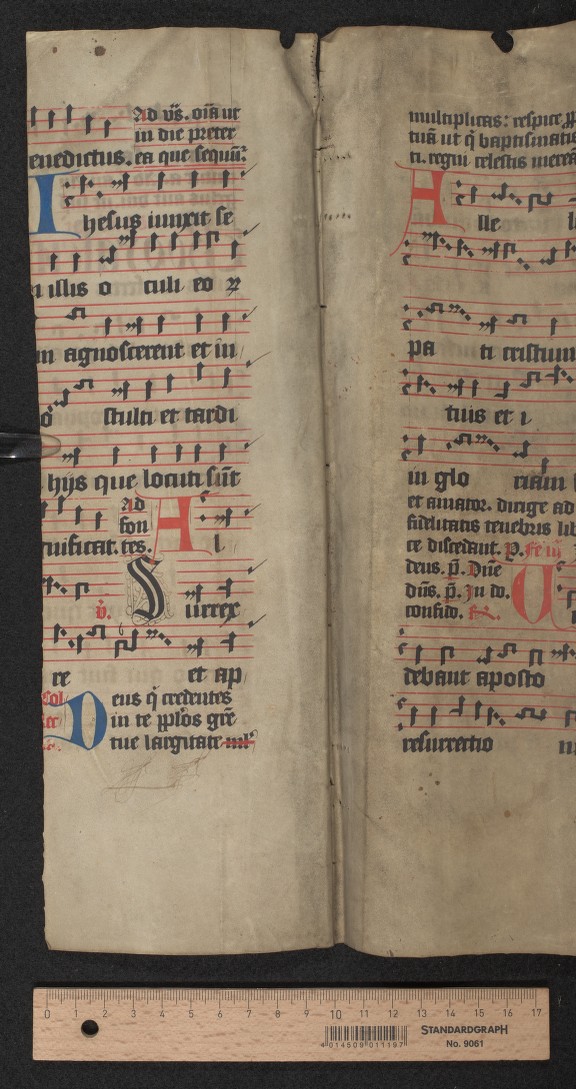 Ad vs̄. oīa ut
in die preter
enedictus. ea que sequūt̄.
Ihesus iunxit se
illis o culi eo ꝝ
agnoscerent et in
stulti et tardi
hijs que locuti sūt
Ad
fon
nificat. tes. Al
v̄. Surrex
re et ap
Col
Deus q̇ credentes
in te pplōs grē
tue largitate mlᵗ
multiplicas: respice
tuā ut q̇ baptismatis
ti. regni celestis
Alle
pa ti cristum
tuis et i
in glo riam
et amator. dirige ad
fidelitatis tenebris lib
te discedant. P. Fe iij
deus. p̄. Dn̄e
dn̄s. p̄. In do.
confido.
debant aposto
resurrectio
0 1 2 3 4 5 6 7 8 9 10 11 12 13 14 15 16 17
STANDARDGRAPH
4 014509 011197 No. 9061